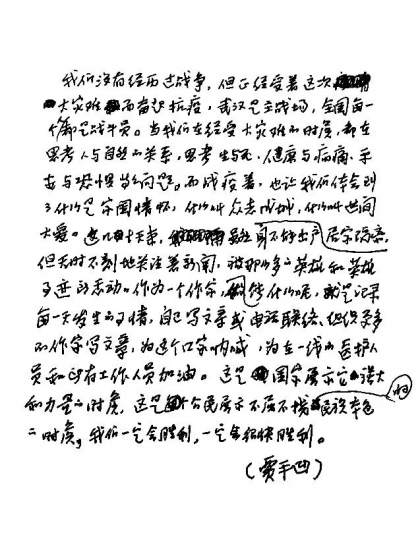 我们没有经历过战争，但正经受着这次
大灾难而奋起抗疫，武汉是主战场，全国每一
个都是战斗员。当我们在经受大灾难的时候，都在
思考人与自然的关系，思考生与死、健康与病痛、
与恐惧等问题。而战疫着，也让我们体会到
了什么是家国情怀，什么叫众志成城，什么叫世间
大爱。这几十天来，虽然自己不能出户居家
但无时不刻地关注着新闻，被那么多的英雄和英雄
事迹所感动。作为一个作家，能做什么呢，就是记录
每一天发生的事情，自己写文章或电话联络、组织更多
的作家写文章，为这个国家呐喊，为在一线的医护人
员和所有工作人员加油。这是国家展示它强大
和力量的时候，这是公民展示不屈不挠的民族本色
的时候，我们一定会胜利，一定会很快胜利。
（贾平凹）